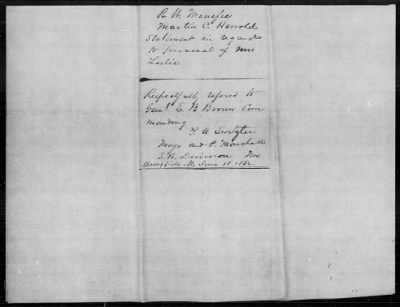 R. W. Menefee
Martin C. Herrold
Statement in regard
to removal of Mrs
Leslie
Respectfully refered to
Genl E B Brown Com
manding
A Switzler
Major and P. Marshall
S. W. Division Mo
Springfield Mo June 18 1862